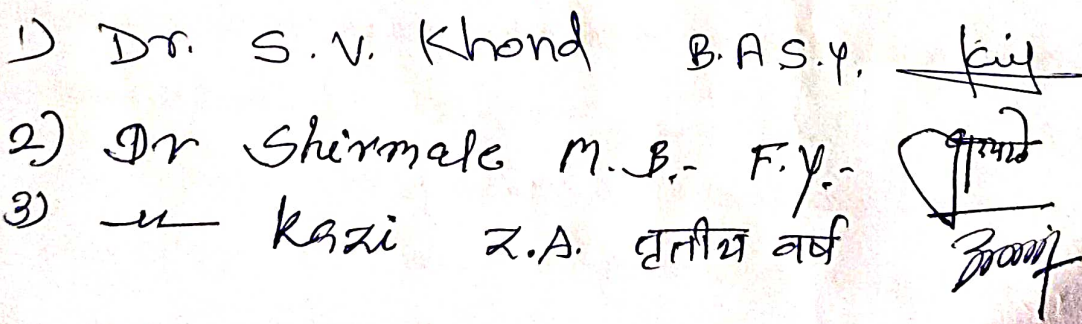 1) Dr. S.V. Khond B.A S.Y.
2) Dr Shirmale M.B.- F.Y.-
3) —"— Kazi Z.A. तृतीय वर्ष